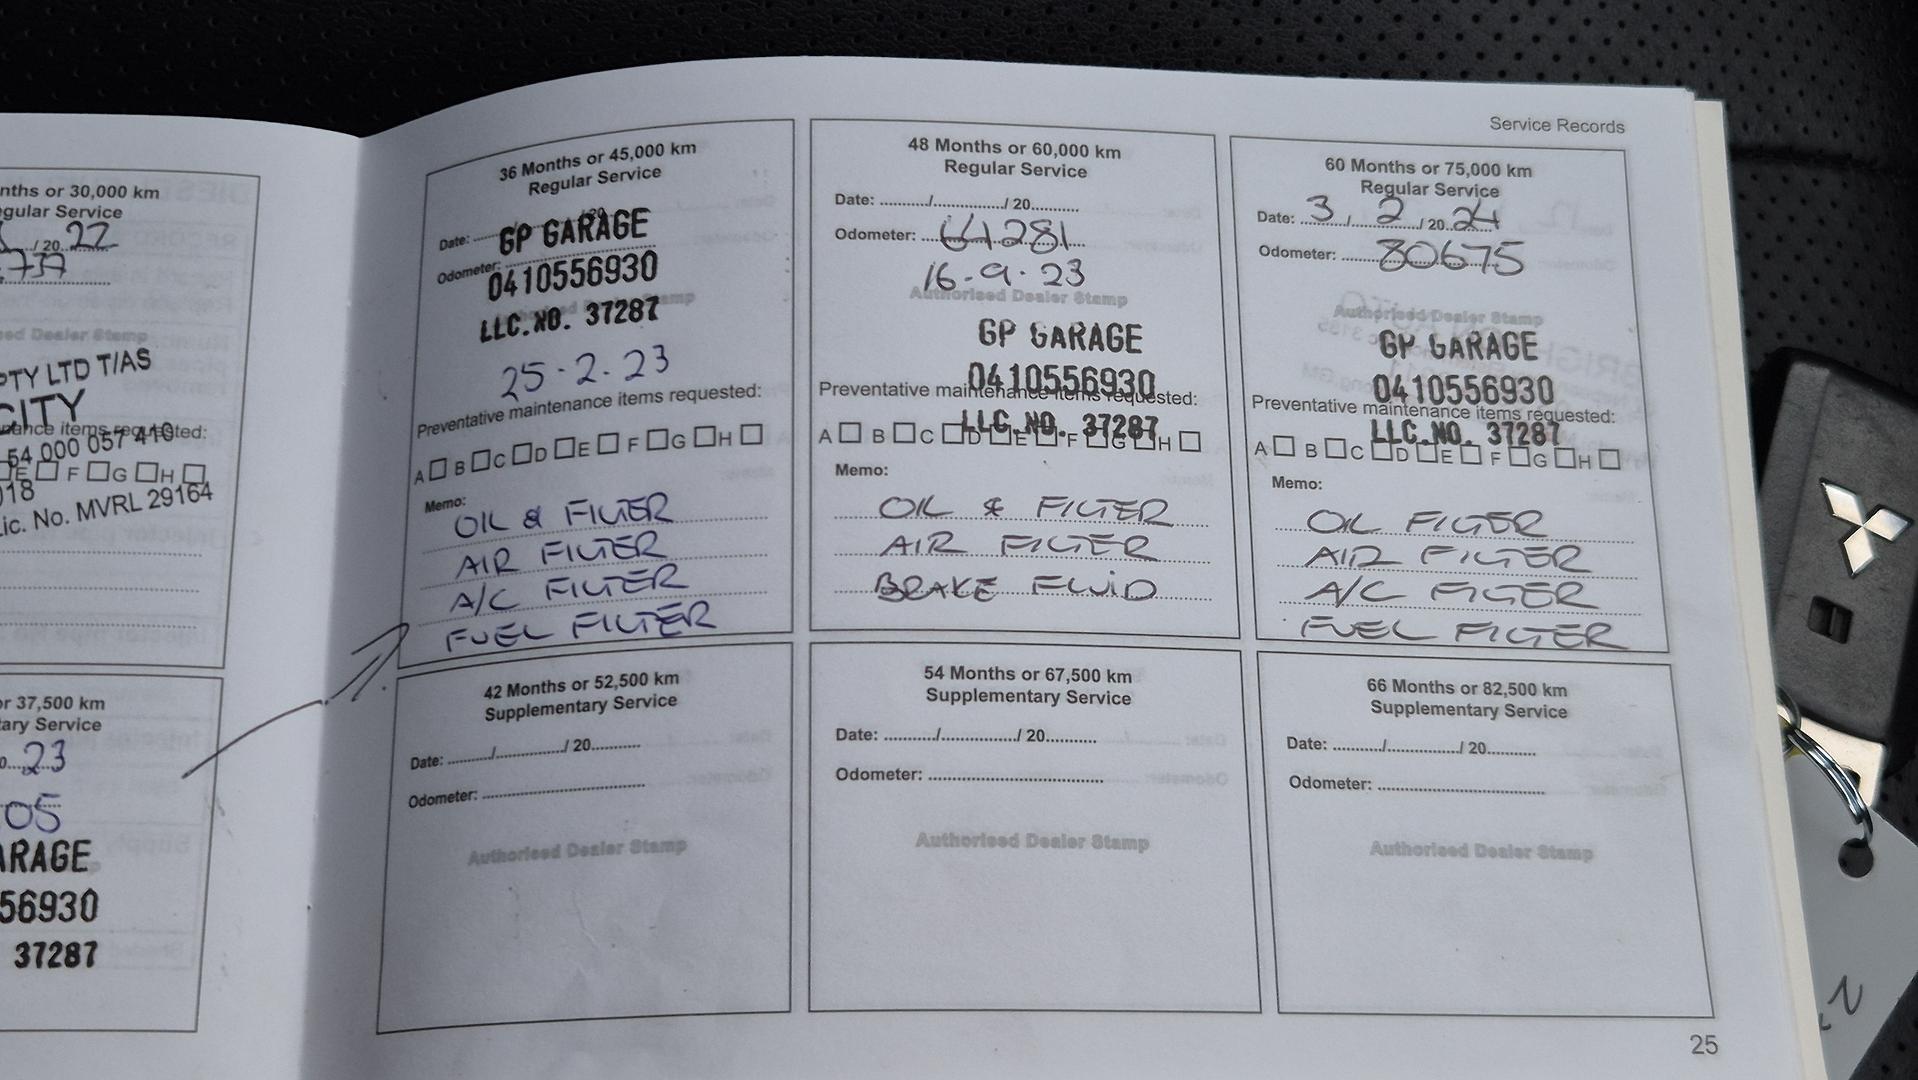 nths or 30,000 km
gular Service
/ 20..22
ed Dealer Stamp
PTY LTD T/AS
CITY
nance items requested:
54 000 057 410
E F G H
018
ic. No. MVRL 29164
or 37,500 km
ary Service
23
05
ARAGE
56930
37287
Service Records
36 Months or 45,000 km
Regular Service
Date:
GP GARAGE
Odometer:
0410556930
Authorised Dealer Stamp
LLC.NO. 37287
25-2-23
Preventative maintenance items requested:
A B C D E F G H
Memo:
OIL & FILTER
AIR FILTER
A/C FILTER
FUEL FILTER
48 Months or 60,000 km
Regular Service
Date: ........../.............../ 20..........
Odometer: 61281
16-9-23
Authorised Dealer Stamp
GP GARAGE
0410556930
Preventative maintenance items requested:
LLC.NO. 37287
A B C D E F G H
Memo:
OIL & FILTER
AIR FILTER
BRAKE FLUID
60 Months or 75,000 km
Regular Service
Date: 3 / 2 / 20 24
Odometer: 80675
Authorised Dealer Stamp
GP GARAGE
0410556930
Preventative maintenance items requested:
LLC.NO. 37287
A B C D E F G H
Memo:
OIL FILTER
AIR FILTER
A/C FILTER
FUEL FILTER
42 Months or 52,500 km
Supplementary Service
Date: ........../.............../ 20...........
Odometer: ....................................
Authorised Dealer Stamp
54 Months or 67,500 km
Supplementary Service
Date: ........../.............../ 20...........
Odometer: ....................................
Authorised Dealer Stamp
66 Months or 82,500 km
Supplementary Service
Date: ........../.............../ 20...........
Odometer: ....................................
Authorised Dealer Stamp
25